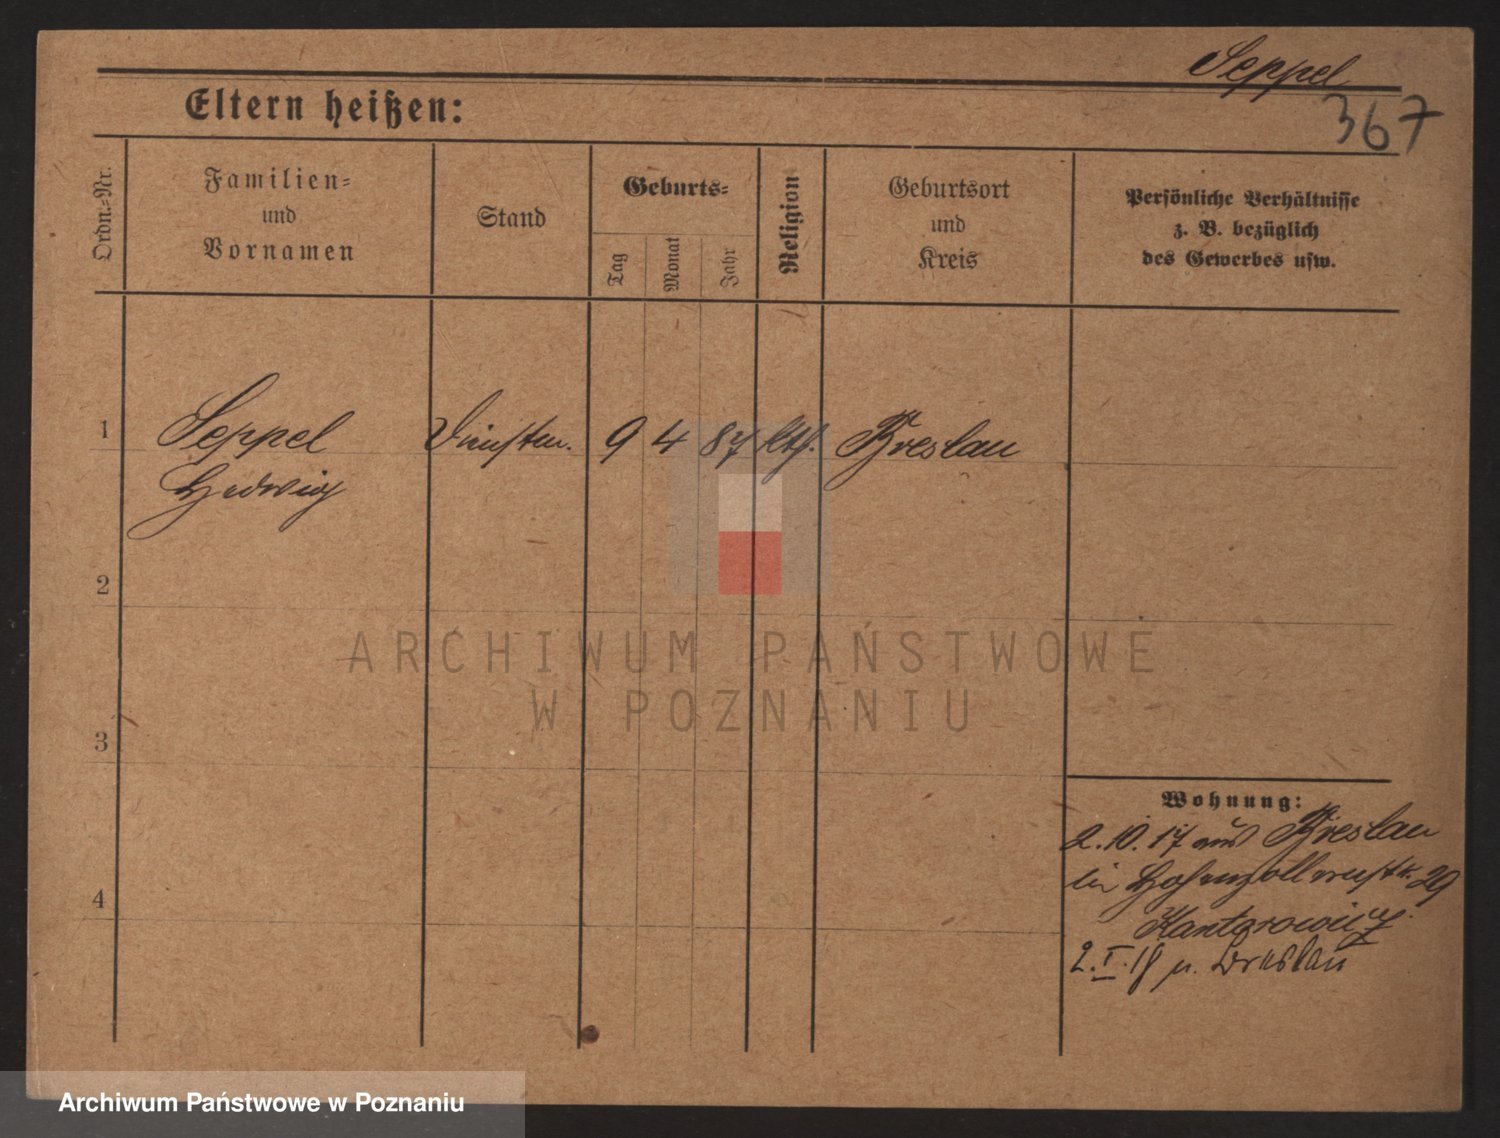 Seppel
367
Eltern heißen:
Ordn.-Nr.
Familien-
und
Vornamen
Stand
Geburts-
Tag
Monat
Jahr
Religion
Geburtsort
und
Kreis
Persönliche Verhältnisse
z. B. bezüglich
des Gewerbes usw.
1
Seppel
Hedwig
9 4 87 kth. Breslau
2
3
4
ARCHIWUM PAŃSTWOWE
W POZNANIU
Wohnung:
2.10.17 aus Breslau
Hohenzollernstr. 29
Kantorowicz
2.I.18 n. Breslau
Archiwum Państwowe w Poznaniu